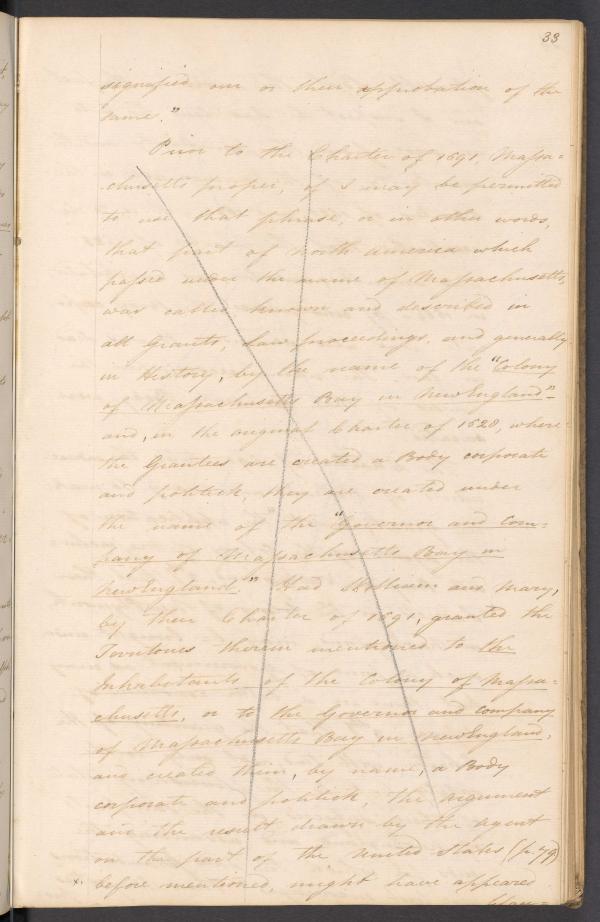 33
signified our or their approbation of the
same."
Prior to the Charter of 1691, Massa=
chusetts proper, if I may be permitted
to use that phrase, or in other words,
that part of North America which
passed under the name of Massachusetts,
was called known and described in
all Grants, Law proceedings, and generally
in History, by the name of the "Colony
of Massachusetts Bay in New England"=
and, in the original Charter of 1628, where
the Grantees are created a Body corporate
and politick, they are created under
the name of the "Governor and Com=
pany of Massachusetts Bay in
New England." Had William and Mary,
by their Charter of 1691, granted the
Territories therein mentioned to the
Inhabitants of the Colony of Massa=
chusetts, or to the Governor and Company
of Massachusetts Bay in New England,
and created them, by name, a Body
corporate and politick, the argument
and the result drawn by the Agent
on the part of the United States (p. 79)
x. before mentioned, might have appeared